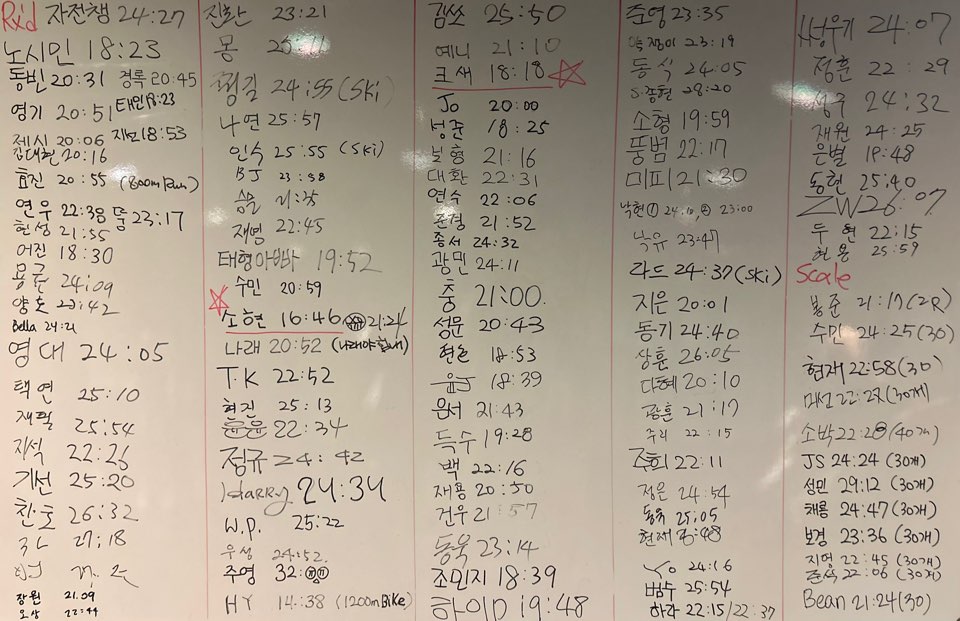 Rx'd 자전챙 24:27
노시민 18:23
동빈 20:31 경록 20:45
영기 20:51 태민 18:23
제시 20:06 18:53
김대현 20:16
효진 20:55 (800m Run)
연우 22:38 23:17
헌성 21:55
어진 18:30
용규 24:09
양호 20:42
Bella 24:21
영대 24:05
택연 25:10
재필 25:54
지석 22:26
기선 25:20
찬호 26:32
27:18
장원 21.09
22:44
진환 23:21
몽
평길 24:55 (SKi)
나연 25:57
인수 25:55 (SKi)
BJ 23:58
21:25
재명 22:45
태형아빠 19:52
수민 20:59
소현 16:46 21:21
나래 20:52
T.K 22:52
현진 25:13
윤윤 22:34
정규 24:42
Harry 24:34
W.P. 25:22
우성 24:52
주영 32:
HY 14:38 (1200m BiKe)
김쏘 25:50
예니 21:10
크새 18:18
Jo 20:00
성준 18:25
보형 21:16
대환 22:31
연수 22:06
윤경 21:52
종서 24:32
광민 24:11
충 21:00.
성문 20:43
18:53
윤J 18:39
윤서 21:43
득수 19:28
백 22:16
재용 20:50
건우 21:57
동욱 23:14
조민지 18:39
하이D 19:48
준영 23:35
23:19
동식 24:05
S.종현 28:20
소형 19:59
뚱범 22:17
미피 21:30
낙현 23:00
낙유 23:47
라드 24:37 (SKi)
지은 20:01
동기 24:40
상훈 26:05
다혜 20:10
광훈 21:17
주리 22:15
22:11
정은 24:54
동욱 25:05
현재
24:16
범수 25:54
하라 22:15/22:37
성우기 24:07
정훈 22:29
성주 24:32
재원 24:25
은별 19:48
동현 25:40
ZW 26:07
두현 22:15
한용 25:59
Scale
봉준 21:17 (2R)
수민 24:25 (30)
현재 22:58 (30)
미선 (30개)
소박 (40개)
JS 24:24 (30개)
성민 29:12 (30개)
채용 24:47 (30개)
보경 23:36 (30개)
지영 22:45 (30개)
준식 22:06 (30개)
Bean 21:24 (30)